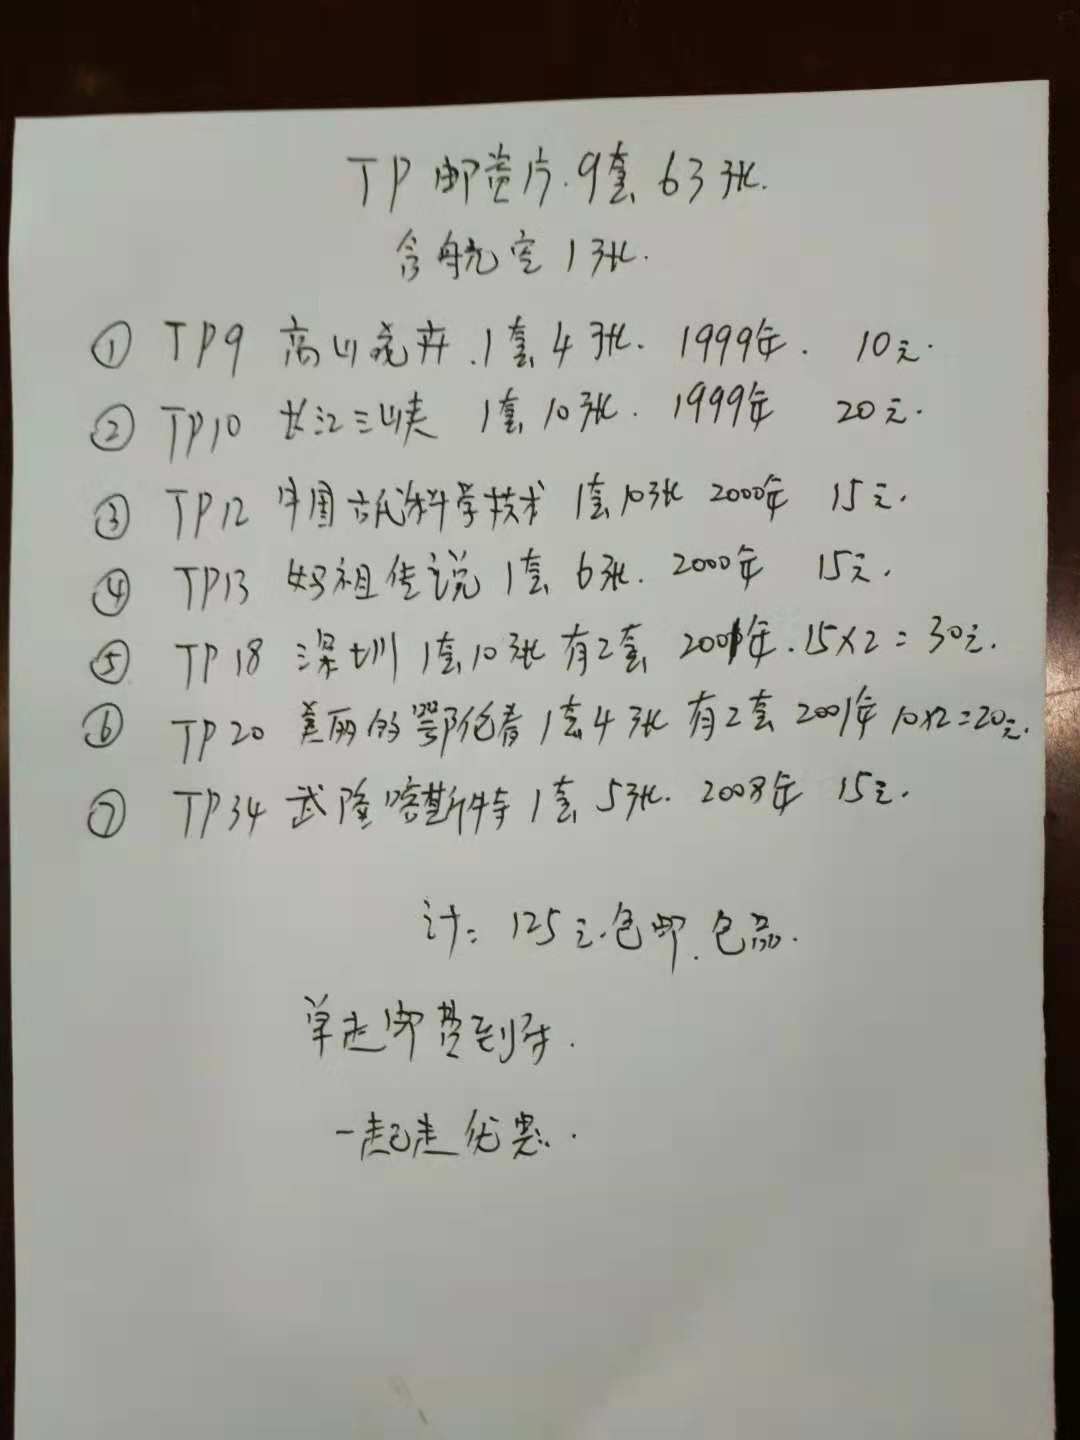 TP邮资片.9套63张.
含航空1张.
① TP9 高山花卉.1套4张. 1999年. 10元.
② TP10 长江三峡 1套10张. 1999年 20元.
③ TP12 中国古代科学技术 1套10张 2000年 15元.
④ TP13 妈祖传说 1套6张. 2000年 15元.
⑤ TP18 深圳 1套10张有2套 2001年.15×2=30元.
⑥ TP20 美丽的鄂伦春 1套4张 有2套 2001年 10×2=20元.
⑦ TP34 武隆喀斯特 1套5张. 2008年 15元.
计: 125元.包邮.包品.
单走邮费到付.
一起走优惠.